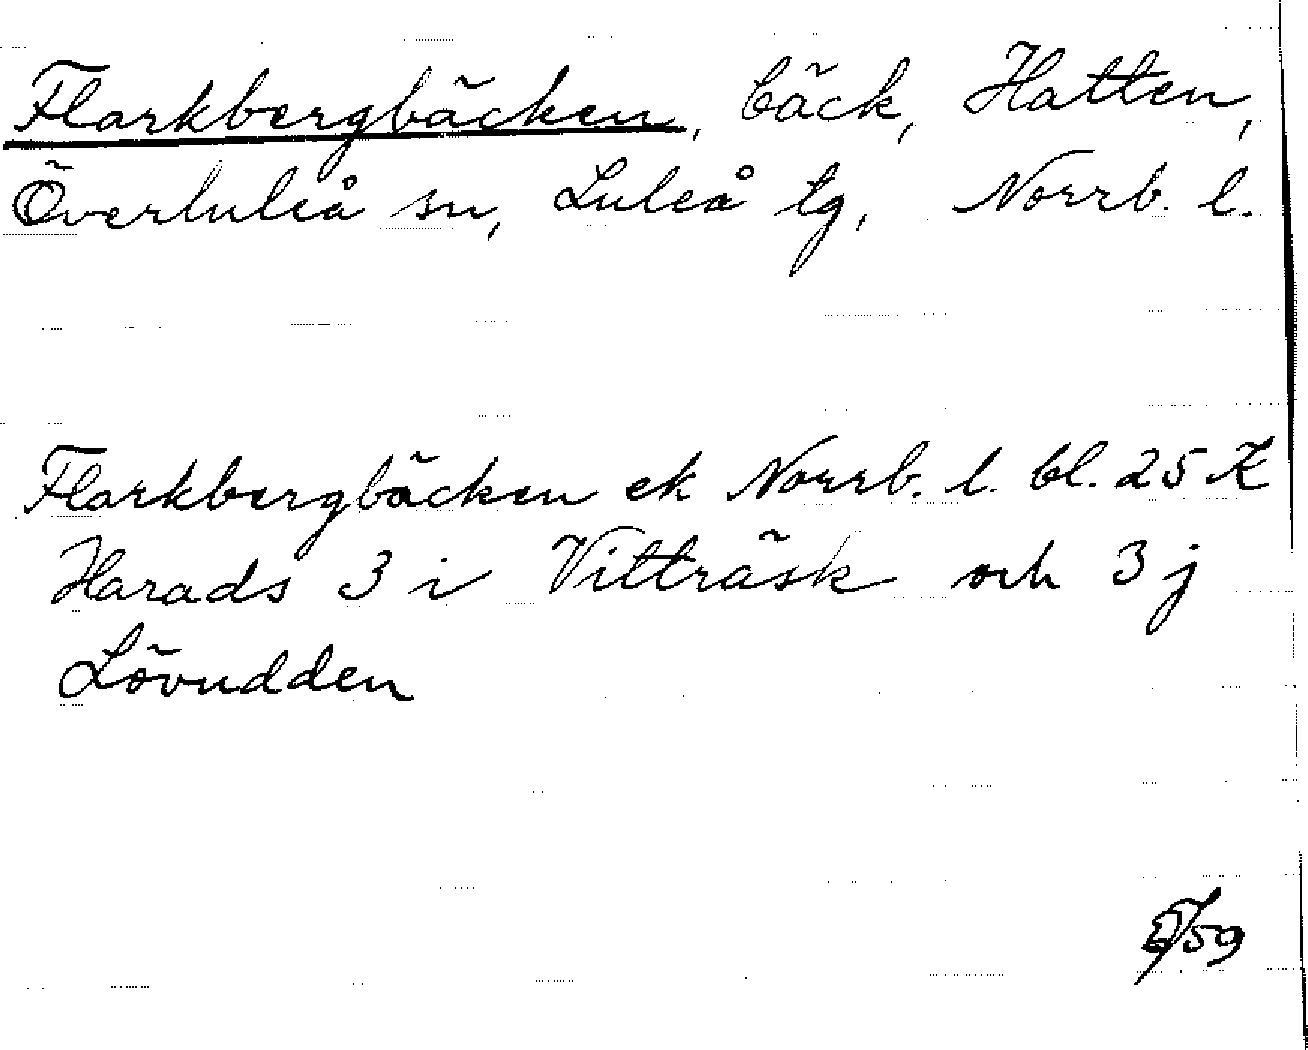 Flarkbergbäcken, bäck, Hatten,
Överluleå sn, Luleå tg, Norrb. l.
Flarkbergbäcken ek Norrb. l. bl. 25 K
Harads 3 i Vitträsk och 3 j
Lövudden
/59